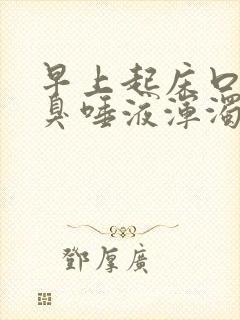 早上起床口
臭唾液浑浊
鄧厚廣